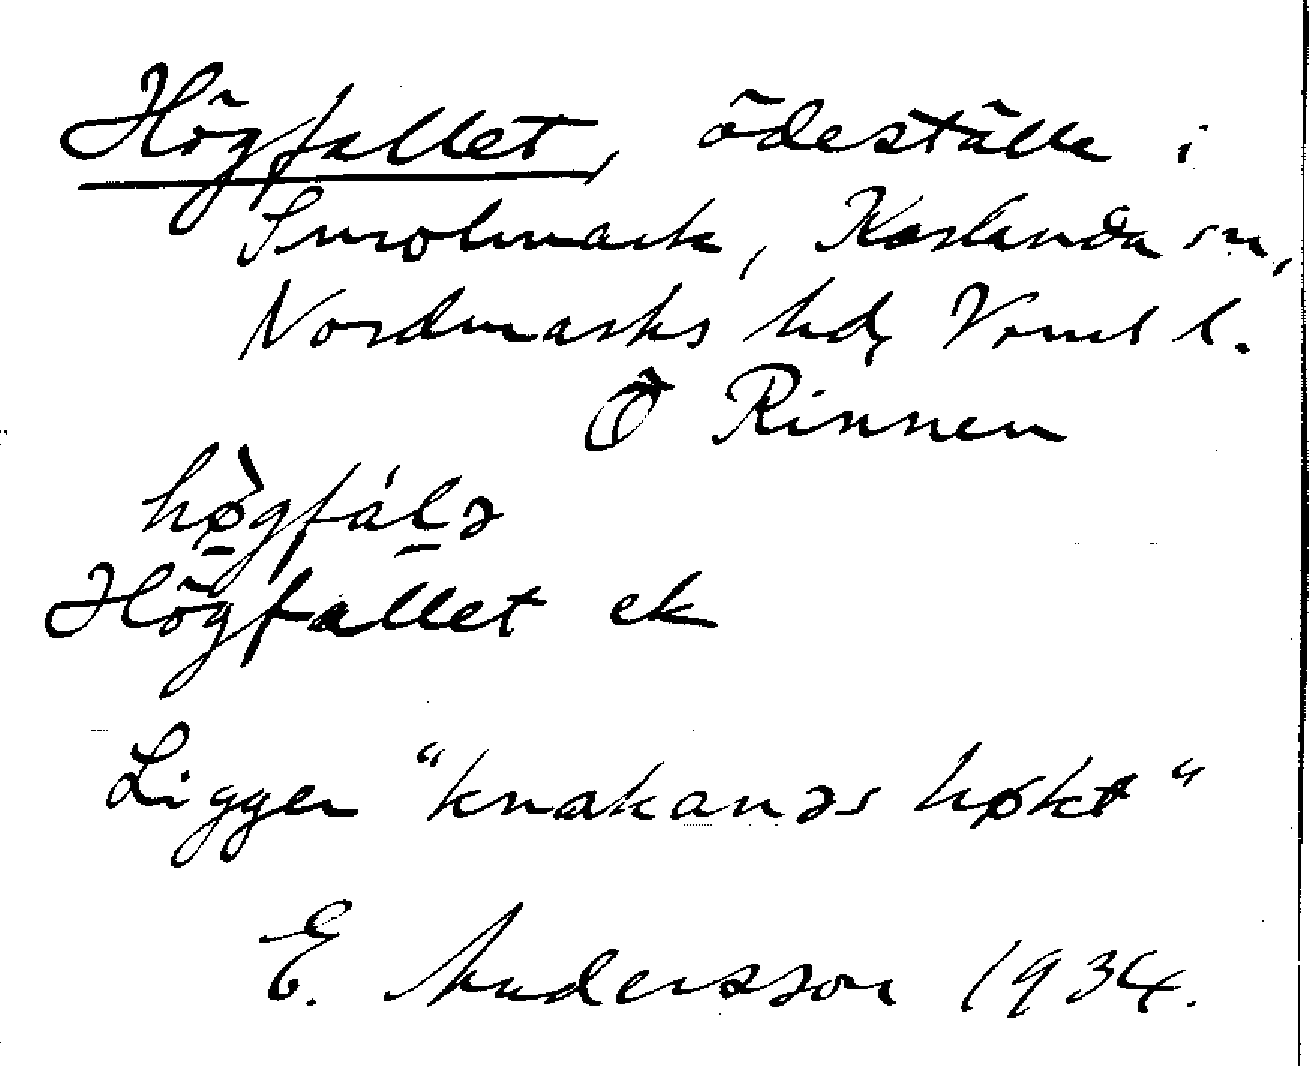 Högfallet, ödeställe i
Smolmark, Karlanda sn,
Nordmarks hd, Vrml l.
Ö Rinnen
hø̀gfálə
Högfallet ek
Ligger "knakanəs høkt"
E. Andersson 1934.